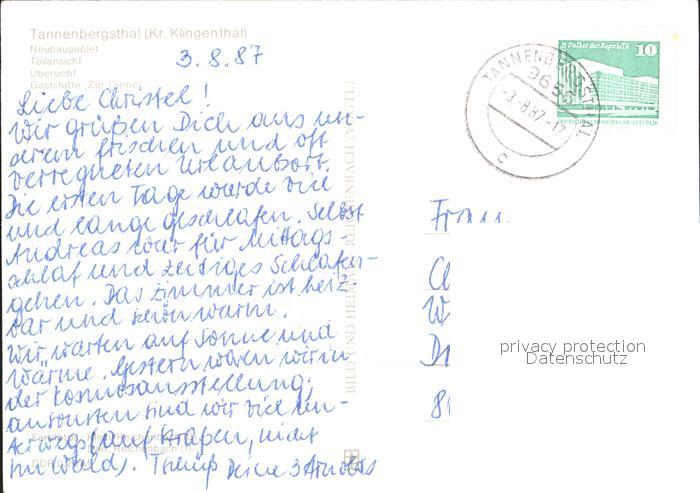 Tannenbergsthal (Kr. Klingenthal)
Neubaugebiet
Teilansicht
Übersicht
Gaststätte „Zur Tanne"
3.8.87
Liebe Christel!
Wir grüßen Dich aus un-
serem frischen und oft
verregneten Urlaubsort.
Die ersten Tage wurde viel
und lange geschlafen. Selbst
Andreas war für Mittags-
schlaf und zeitiges Schlafen-
gehen. Das Zimmer ist heiz-
bar und schön warm.
Wir warten auf Sonne und
Wärme. Gestern waren wir in
der Kosmosausstellung,
ansonsten sind wir viel un-
terwegs (auf Straßen, nicht
im Wald). Tschüß Deine 3
BILD UND HEIMAT REICHENBACH (VOGTL)
TANNENBERGSTHAL
9656
-3.-8.87-17
c
Palast der Republik
10
DEUTSCHE DEMOKRATISCHE REPUBLIK
Frau
privacy protection
Datenschutz